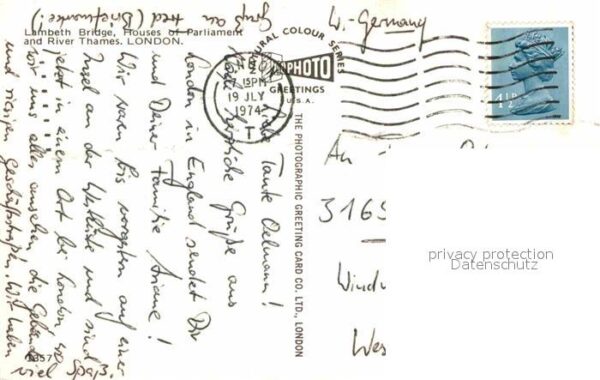 Gruß an Fred (Briefmarke!)
Lambeth Bridge, Houses of Parliament
and River Thames. LONDON.
W.-Germany
NATURAL COLOUR SERIES
PHOTO
GREETINGS
U.S.A.
15PM
19 JLY
1974
T
4½P
THE PHOTOGRAPHIC GREETING CARD CO. LTD., LONDON
Liebe Tante Oelmann!
herzliche Grüße aus
London in England sendet Dir
und Deiner Familie Ariane!
Wir waren bis vorgestern auf einer
Insel an der Westküste und sind
jetzt in einem Ort bei London wo
wir uns alles ansehen, die Gebäude
und riesigen Geschäftsstraßen. Wir haben
viel Spaß.
An
3165
privacy protection
Datenschutz